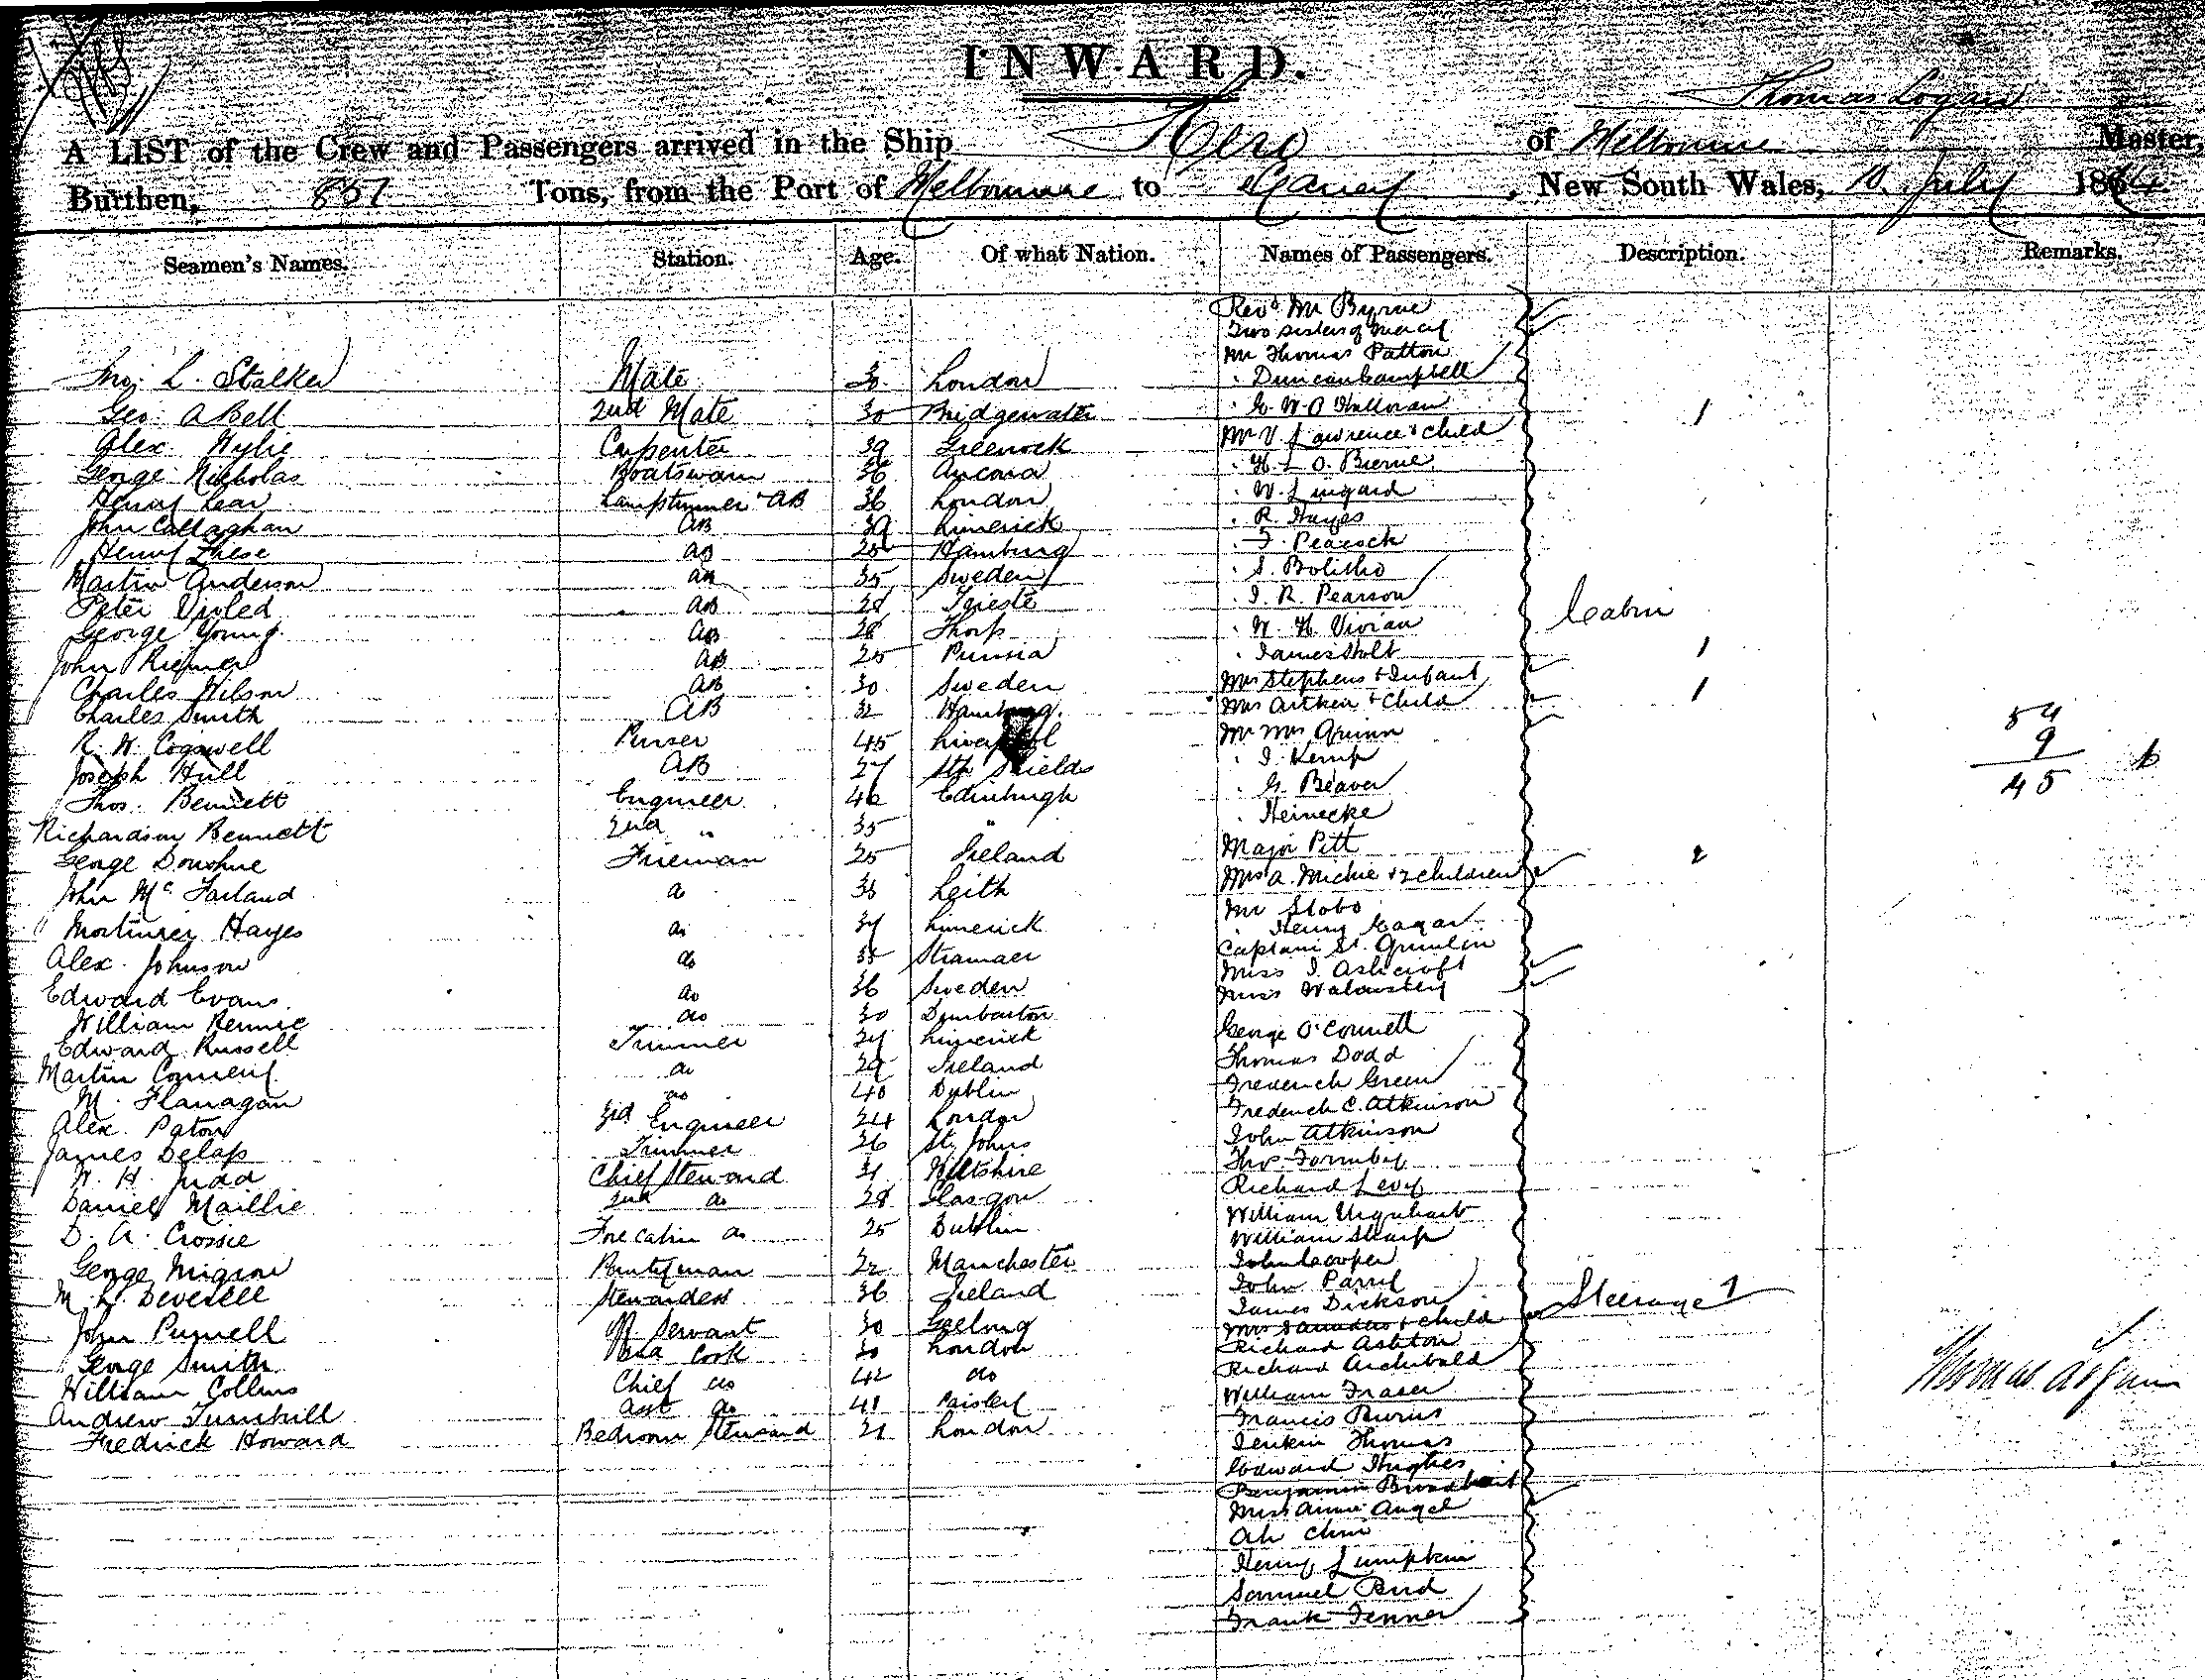 INWARD.
Thomas Logan
A LIST of the Crew and Passengers arrived in the Ship Hero of Melbourne Master,
Burthen, 857 Tons, from the Port of Melbourne to Sydney, New South Wales, 10 July 1864
Seamen's Names. Station. Age. Of what Nation. Names of Passengers. Description. Remarks.
Jno. L. Stalker Mate 30 London
Geo. A Bell 2nd Mate 30 Bridgewater
Alex. Wylie Carpenter 39 Greenock
George Nicholas Boatswain 36 Ancona
Henry Lear Lamptrimmer AB 36 London
John Callaghan AB 39 Limerick
Henry AB Hamburg
Martin Anderson AB 35 Sweden
Peter AB 28 Trieste
George Young AB 28
John AB 25
Charles Wilson AB 30 Sweden
Charles Smith AB 32 Hamburg
R. W. Cogswell Purser 45 Liverpool
Joseph Hull AB 27 Sth Shields
Thos. Bennett Engineer 46 Edinburgh
Richardson Bennett 2nd " 35 "
George Donohue Fireman 25 Ireland
John McFarland do Leith
Mortimer Hayes do 34 Limerick
Alex. Johnson do 35
Edward Evans do 36 Sweden
William Rennie do 30 Dumbarton
Edward Russell Trimmer 24 Limerick
Martin do 29 Ireland
M. Flanagan do 40 Dublin
Alex. Paton 3rd Engineer 24 London
James Delap Trimmer 26 St. Johns
W. H. Judd Chief Steward 31 Wiltshire
Daniel Maillie 2nd do 28 Glasgow
D. A. Crossie Fore cabin do 25 Dublin
George Pantryman 22 Manchester
M. L. Deverell Stewardess 36 Ireland
John Purnell Servant 30 Geelong
George Smith 2nd Cook 30 London
William Collins Chief do 42 do
Andrew Turnbill Asst do 41 Paisley
Fredrick Howard Bedroom Steward 21 London
Revd. Mr Byrne
Two Sisters of Mercy
Mr Thomas Patton
" Duncan Campbell
" G. W. O'Halloran
Mr V. Lawrence & child
" H. L. O. Bierne
" W. Lingard
" R. Hayes
" F. Peacock
" S. Bolitho
" I. R. Pearson
" W. H. Vivian
" James Holt
Mrs Stephens & Infant
Mrs Aitken & Child
Mr Mrs Quinn
" J. Kemp
" G. Beaver
" Heinecke
Major Pitt
Mrs A. Michie & 2 children
Mr Stobo
" Henry
Captain St.
Miss I. Ashcroft
Miss
Cabin
1
1
1
2
George O'Connell
Thomas Dodd
Frederick Green
Frederick C. Atkinson
John Atkinson
Thos. Formby
Richard Levy
William Urquhart
William Sharp
John Cooper
John Parry
James Dickson
Mrs Saunders & Child
Richard Ashton
Richard Archibald
William Fraser
Francis
Jenkin Thomas
Edward Hughes
Benjamin Broadbent
Miss Annie Angel
Ah Chin
Henry Lumpkin
Samuel Bird
Frank Fenner
Steerage 1
54
9
45
Thomas Logan